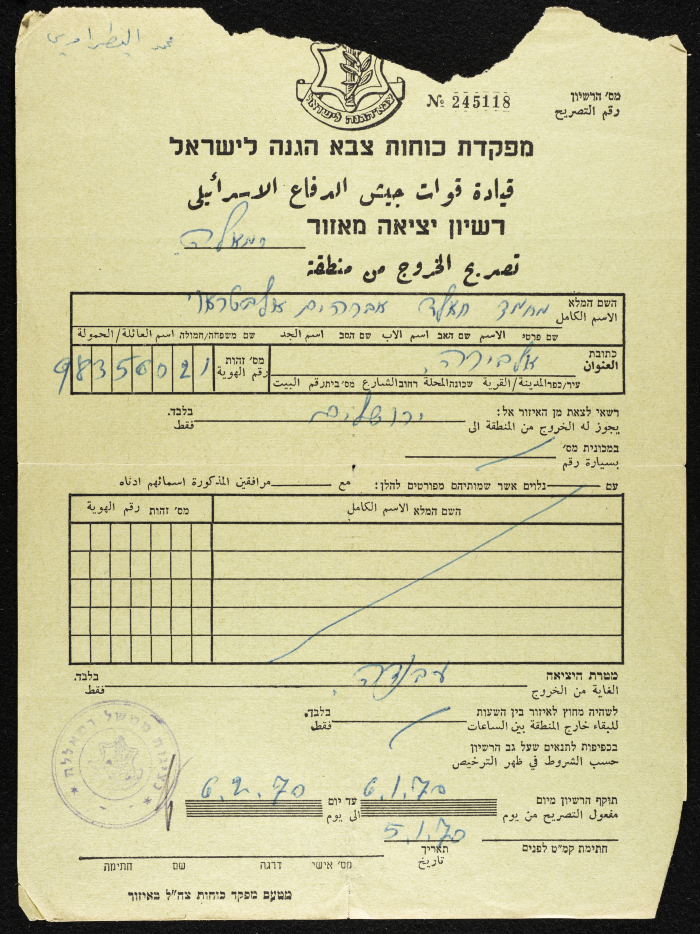 محمد البطراوي
צבא הגנה לישראל
מס' הרשיון
رقم التصريح
№ 245118
מפקדת כוחות צבא הגנה לישראל
قيادة قوات جيش الدفاع الاسرائيلي
רשיון יציאה מאזור רמאללה
تصريح الخروج من منطقة
השם המלא
الاسم الكامل
מחמד חאלד אברהים אלבטראוי
שם פרטי الاسم שם האב اسم الاب שם הסב اسم الجد שם משפחה/חמולה اسم العائلة/الحمولة
כתובת
العنوان
אלבירה
עיר/כפר المدينة/القرية שכונה المحلة רחוב الشارع מס' בית رقم البيت
מס' זהות
رقم الهوية
98356021
רשאי לצאת מן האיזור אל: ירושלים בלבד.
يجوز له الخروج من المنطقة الى فقط
במכונית מס'
بسيارة رقم
עם נלוים אשר שמותיהם מפורטים להלן: مع مرافقين المذكورة اسمائهم ادناه
השם המלא الاسم الكامل מס' זהות رقم الهوية
מטרת היציאה עבודה בלבד.
الغاية من الخروج فقط
לשהיה מחוץ לאיזור בין השעות בלבד.
للبقاء خارج المنطقة بين الساعات فقط
בכפיפות לתנאים שעל גב הרשיון
حسب الشروط في ظهر الترخيص
תוקף הרשיון מיום 6.1.70 עד יום 6.2.70
مفعول التصريح من يوم الى يوم
5.1.70
חתימת קמ"ט לפנים תאריך
تاريخ
מס' אישי דרגה שם חתימה
מטעם מפקד כוחות צה"ל באיזור